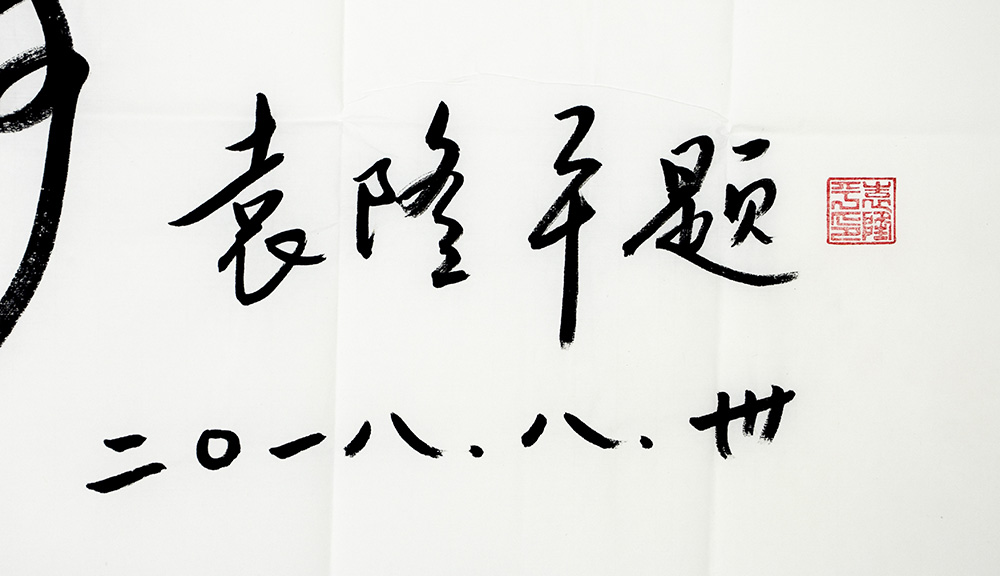 袁隆平题
二〇一八.八.卅
袁隆平印